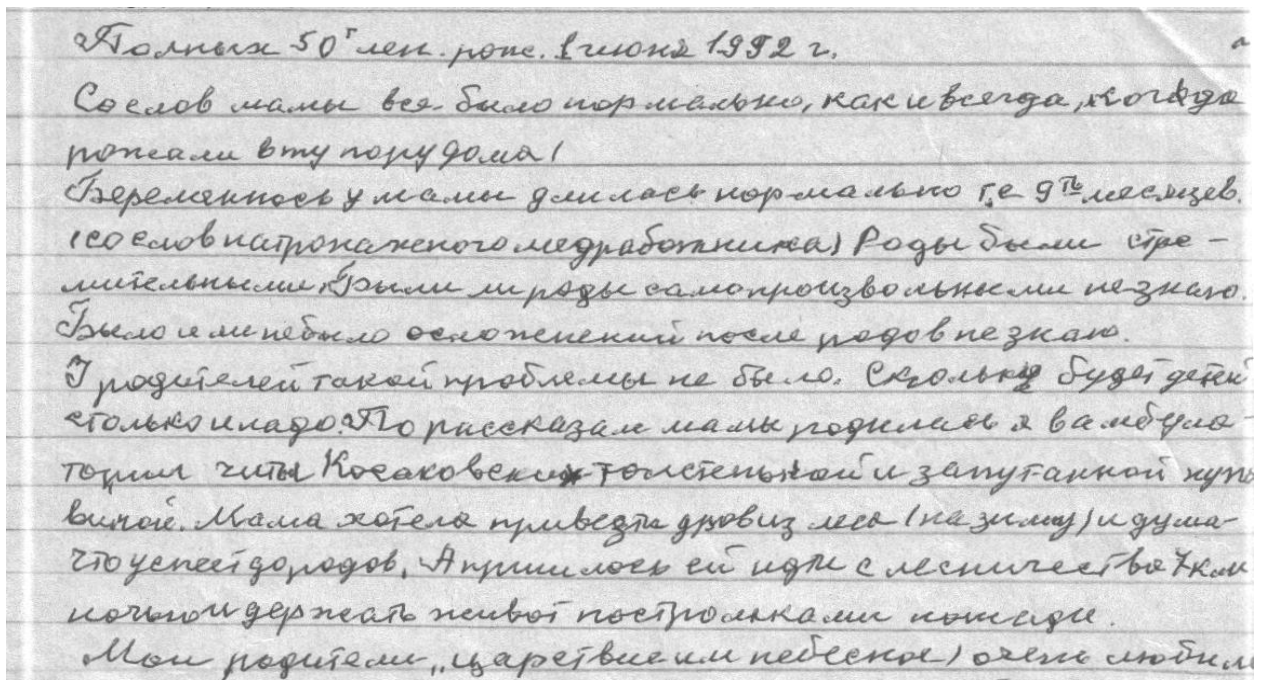 Полных 50т лет. рож. 1 июня 1992 г.
Со слов мамы все было нормально, как и всегда, когда
рожали в ту пору дома!
Беременнось у мамы длилась нормально т.е 9ть месяцев.
(со слов патронажного медработника) Роды были стре-
мительными. Были ли роды самопроизвольными не знаю.
Было или небыло осложнений после родов не знаю.
У родителей такой проблемы не было. Сколько будет детей
столько и надо. По рассказам мамы родилась я в амбула-
тории читы Косаковских толстенькой и запутанной пупо
виной. Мама хотела привезти дров из леса (на зиму) и дума-
что успеет до родов, А пришлось ей идти с лесничества 7 км
ночью и держать живот постромками лошади.
Мои родители, (царствие им небесное) очень любили